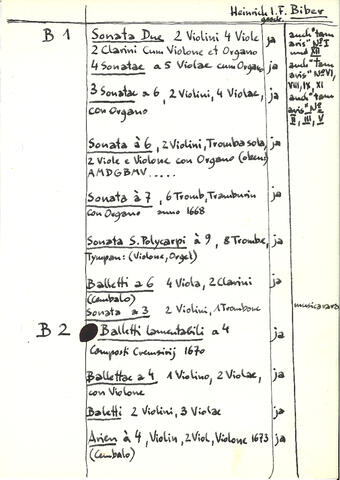 Heinrich I. F. Biber
B 1 Sonata Due 2 Violini 4 Viole ja auch "tam
2 Clarini Cum Violone et Organo aris" No I
und XII
4 Sonatae a 5 Violae cum Organo ja auch "tam
aris" No VI,
VIII, IX, XI
3 Sonatae a 6, 2 Violini, 4 Violae, ja auch "tam
con Organo aris" No
II, III, V
Sonata à 6, 2 Violini, Tromba sola, ja
2 Viole e Violone con Organo
AMDGBMV.....
Sonata à 7, 6 Tromb, Tamburin ja
con Organo anno 1668
Sonata S. Polycarpi à 9, 8 Trombe, ja
Tympan: (Violone, Orgel)
Balletti a 6 4 Viola, 2 Clarini ja
(Cembalo)
Sonata a 3 2 Violini, 1 Trombone musica rara
B 2 Balletti lamentabili a 4 ja
Composti Cremsirij 1670
Ballettae a 4 1 Violino, 2 Violae, ja
con Violone
Baletti 2 Violini, 3 Violae ja
Arien à 4, Violin, 2 Viol, Violone 1673 ja
(Cembalo)